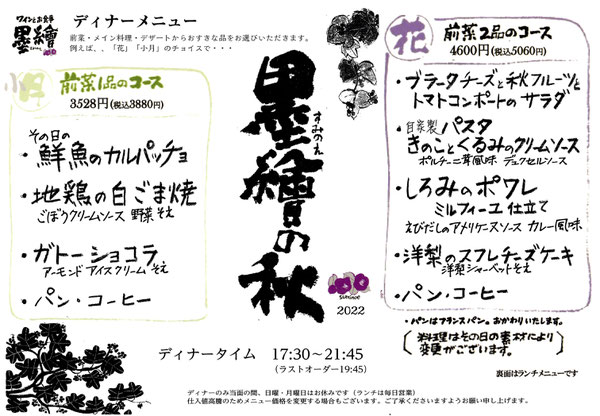 ワインとお食事
墨繪
ディナーメニュー
前菜・メイン料理・デザートからおすきな品をお選びいただきます。
例えば、、「花」「小月」のチョイスで・・・
小月
前菜1品のコース
3528円(税込3880円)
その日の
・鮮魚のカルパッチョ
・地鶏の白ごま焼
ごぼうクリームソース 野菜そえ
・ガトーショコラ
アーモンドアイスクリームそえ
・パン・コーヒー
墨繪の秋
すみのえ
SUMINOE
2022
花
前菜2品のコース
4600円(税込5060円)
・ブラータチーズと秋フルーツと
トマトコンポートのサラダ
・自家製パスタ
きのことくるみのクリームソース
ポルチーニ茸風味 デュクセルソース
・しろみのポワレ
ミルフィーユ仕立て
えびだしのアメリケーヌソース カレー風味
・洋梨のスフレチーズケーキ
洋梨シャーベットそえ
・パン・コーヒー
・パンはフランスパン。おかわりいたします。
料理はその日の素材により
変更がございます。
裏面はランチメニューです
ディナータイム 17:30～21:45
(ラストオーダー19:45)
ディナーのみ当面の間、日曜・月曜日はお休みです（ランチは毎日営業）
仕入値高騰のためメニュー価格を変更する場合もございます。ご了承くださいますようお願い申し上げます。